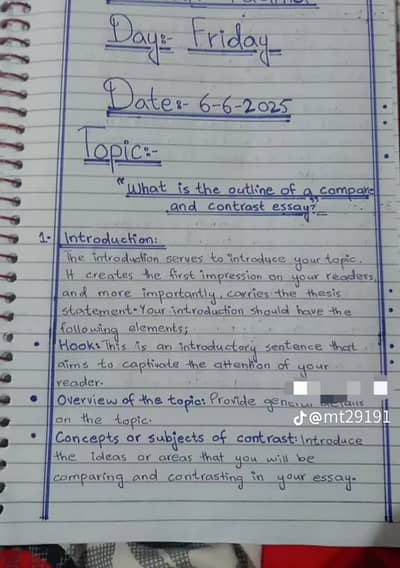 Day:- Friday
Date:- 6-6-2025
Topic:-
"What is the outline of a compare
and contrast essay?"
1- Introduction:
The introduction serves to introduce your topic.
It creates the first impression on your readers,
and more importantly, carries the thesis
statement. Your introduction should have the
following elements;
• Hook: This is an introductory sentence that
aims to captivate the attention of your
reader.
• Overview of the topic: Provide general details
on the topic.
• Concepts or subjects of contrast: Introduce
the ideas or areas that you will be
comparing and contrasting in your essay.
@mt29191